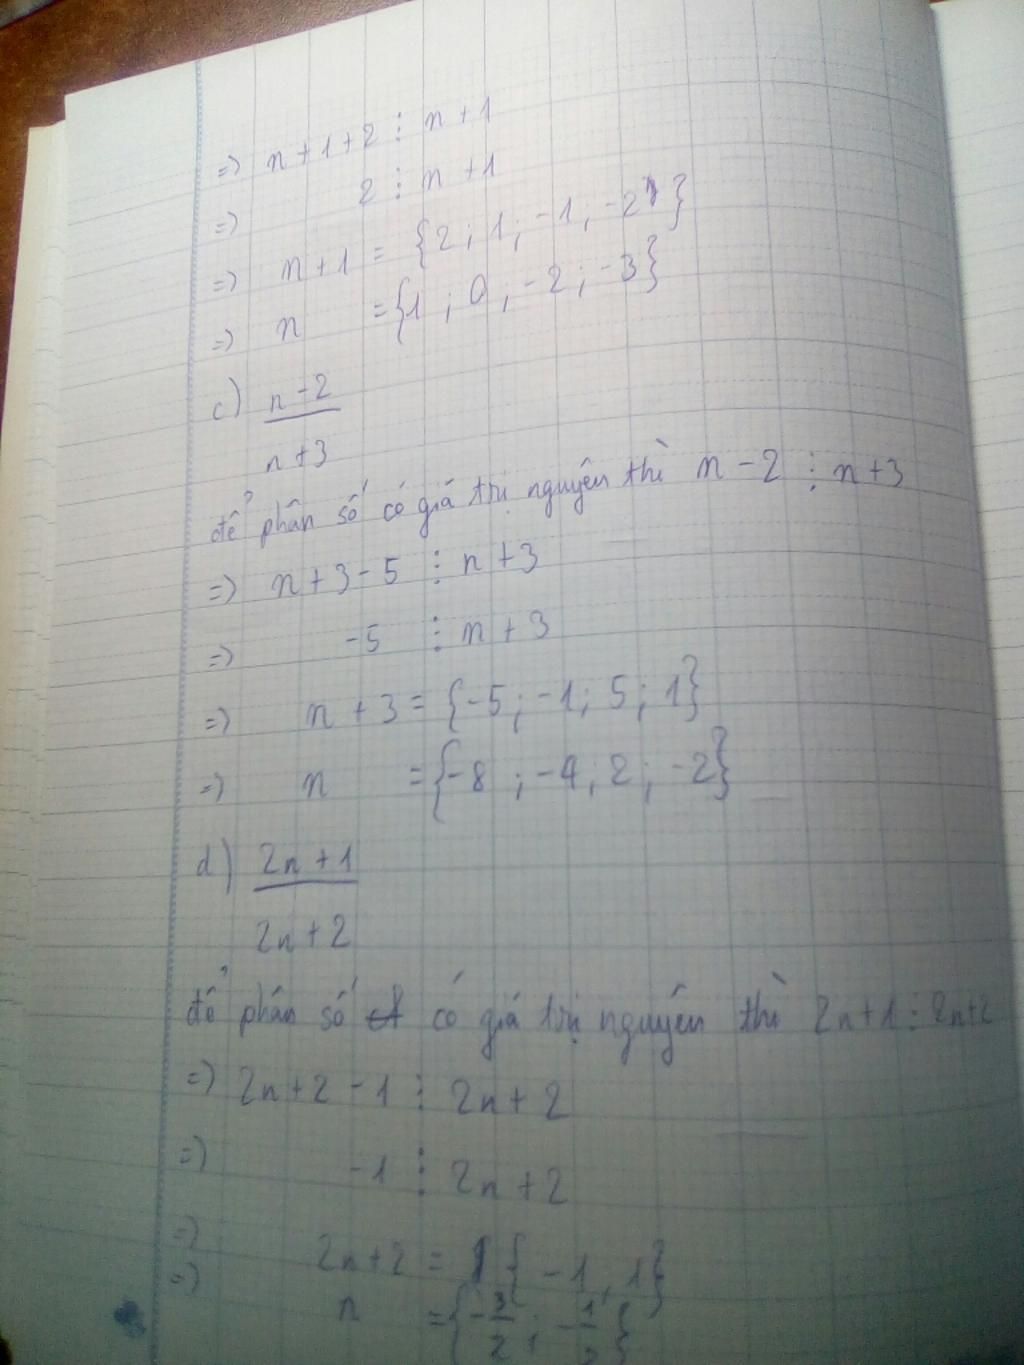 => n+1+2 ⋮ n+1
=> 2 ⋮ n+1
=> n+1 = {2; 1; -1; -2}
=> n = {1; 0; -2; -3}
c) n-2
n+3
để phân số có giá trị nguyên thì n-2 ⋮ n+3
=> n+3-5 ⋮ n+3
=> -5 ⋮ n+3
=> n+3 = {-5; -1; 5; 1}
=> n = {-8; -4; 2; -2}
d) 2n+1
2n+2
để phân số có giá trị nguyên thì 2n+1 ⋮ 2n+2
=> 2n+2-1 ⋮ 2n+2
=> -1 ⋮ 2n+2
=> 2n+2 = {-1; 1}
=> n = {-3/2; -1/2}